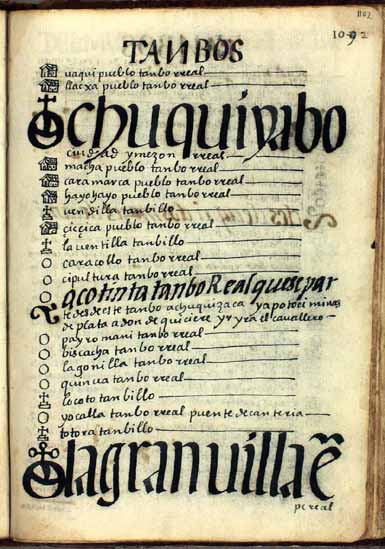 1102
1092
TANBOS
uaqui pueblo tanbo rreal
llacxa pueblo tanbo rreal
chuquiyabo
ciudad y mezon rreal
macha pueblo tanbo rreal
caramarca pueblo tanbo rreal
hayohayo pueblo tanbo rreal
uendilla tanbillo
çicçica pueblo tanbo rreal
la ventilla tanbillo
caracollo tanbo rreal
cipultura tanbo rreal
acotinta tanbo Real que se par
te desde este tanbo a chuquizaca y a potoci minas
de plata adonde quiciere yr yra el cauallero
payromani tanbo rreal
biscacha tanbo rreal
lagonilla tanbo rreal
quinua tanbo rreal
locoto tanbillo
yocalla tanbo rreal puente de canteria
totora tanbillo
la gran uilla ē
pereal